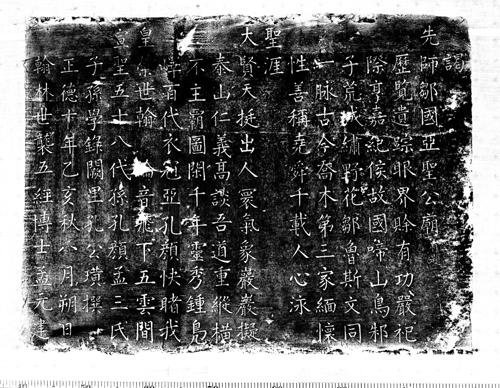 謁
先師鄒國亞聖公廟
歷覽遺踪眼界賒有功嚴祀
際亨嘉紀侯故國啼山鳥邾
子荒城繡野花鄒魯斯文同
一脉古今喬木第三家緬懷
性善稱堯舜千載人心泳
聖涯
大賢天挺出人寰氣象巖巖擬
泰山仁義高談吾道重縱橫
不主霸圖閑千年靈秀鍾鳧
嶧百代衣冠亞孔顏快睹我
皇 世翰 音飛下五雲間
宣聖五十八代孫孔顏孟三氏
子孫學錄闕里孔公璜撰
正德十年乙亥秋八月朔日
翰林世襲五經博士孟元建